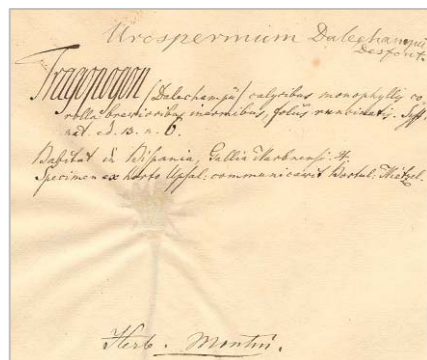 Urospermum Dalechampii
Desfont.
Tragopogon (Dalechampii) calycibus monophyllis co
rolla brevioribus inermibus, foliis runcinatis. Syst
nat. ed. 13. n. 6.
Habitat in Hispania, Gallia Narbonensi. ♃.
Specimen ex horto Upsal: communicavit Hortul:
Herb. Montin.